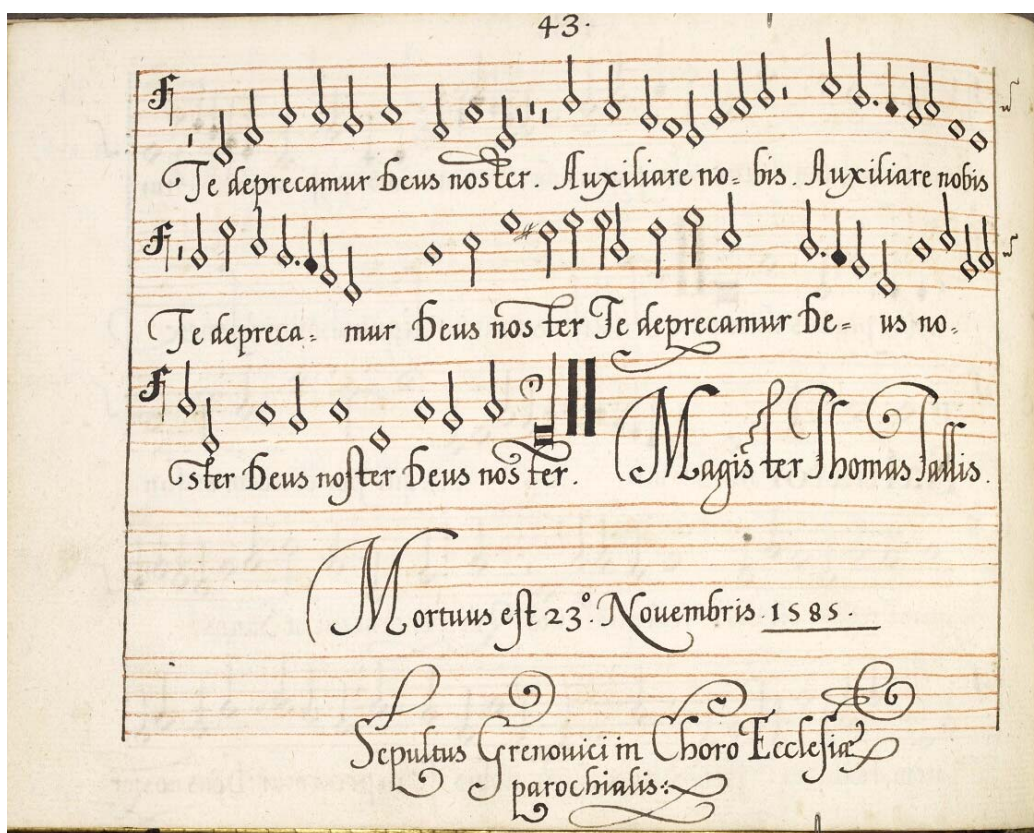 43.
Te deprecamur Deus noster. Auxiliare no= bis. Auxiliare nobis
Te depreca= mur Deus nos ter Te deprecamur De= us no=
ster Deus noſter Deus nos ter. Magister Thomas Tallis.
Mortuus eſt 23º. Nouembris. 1585.
Sepultus Grenouici in Choro Eccleſiæ
parochialis: